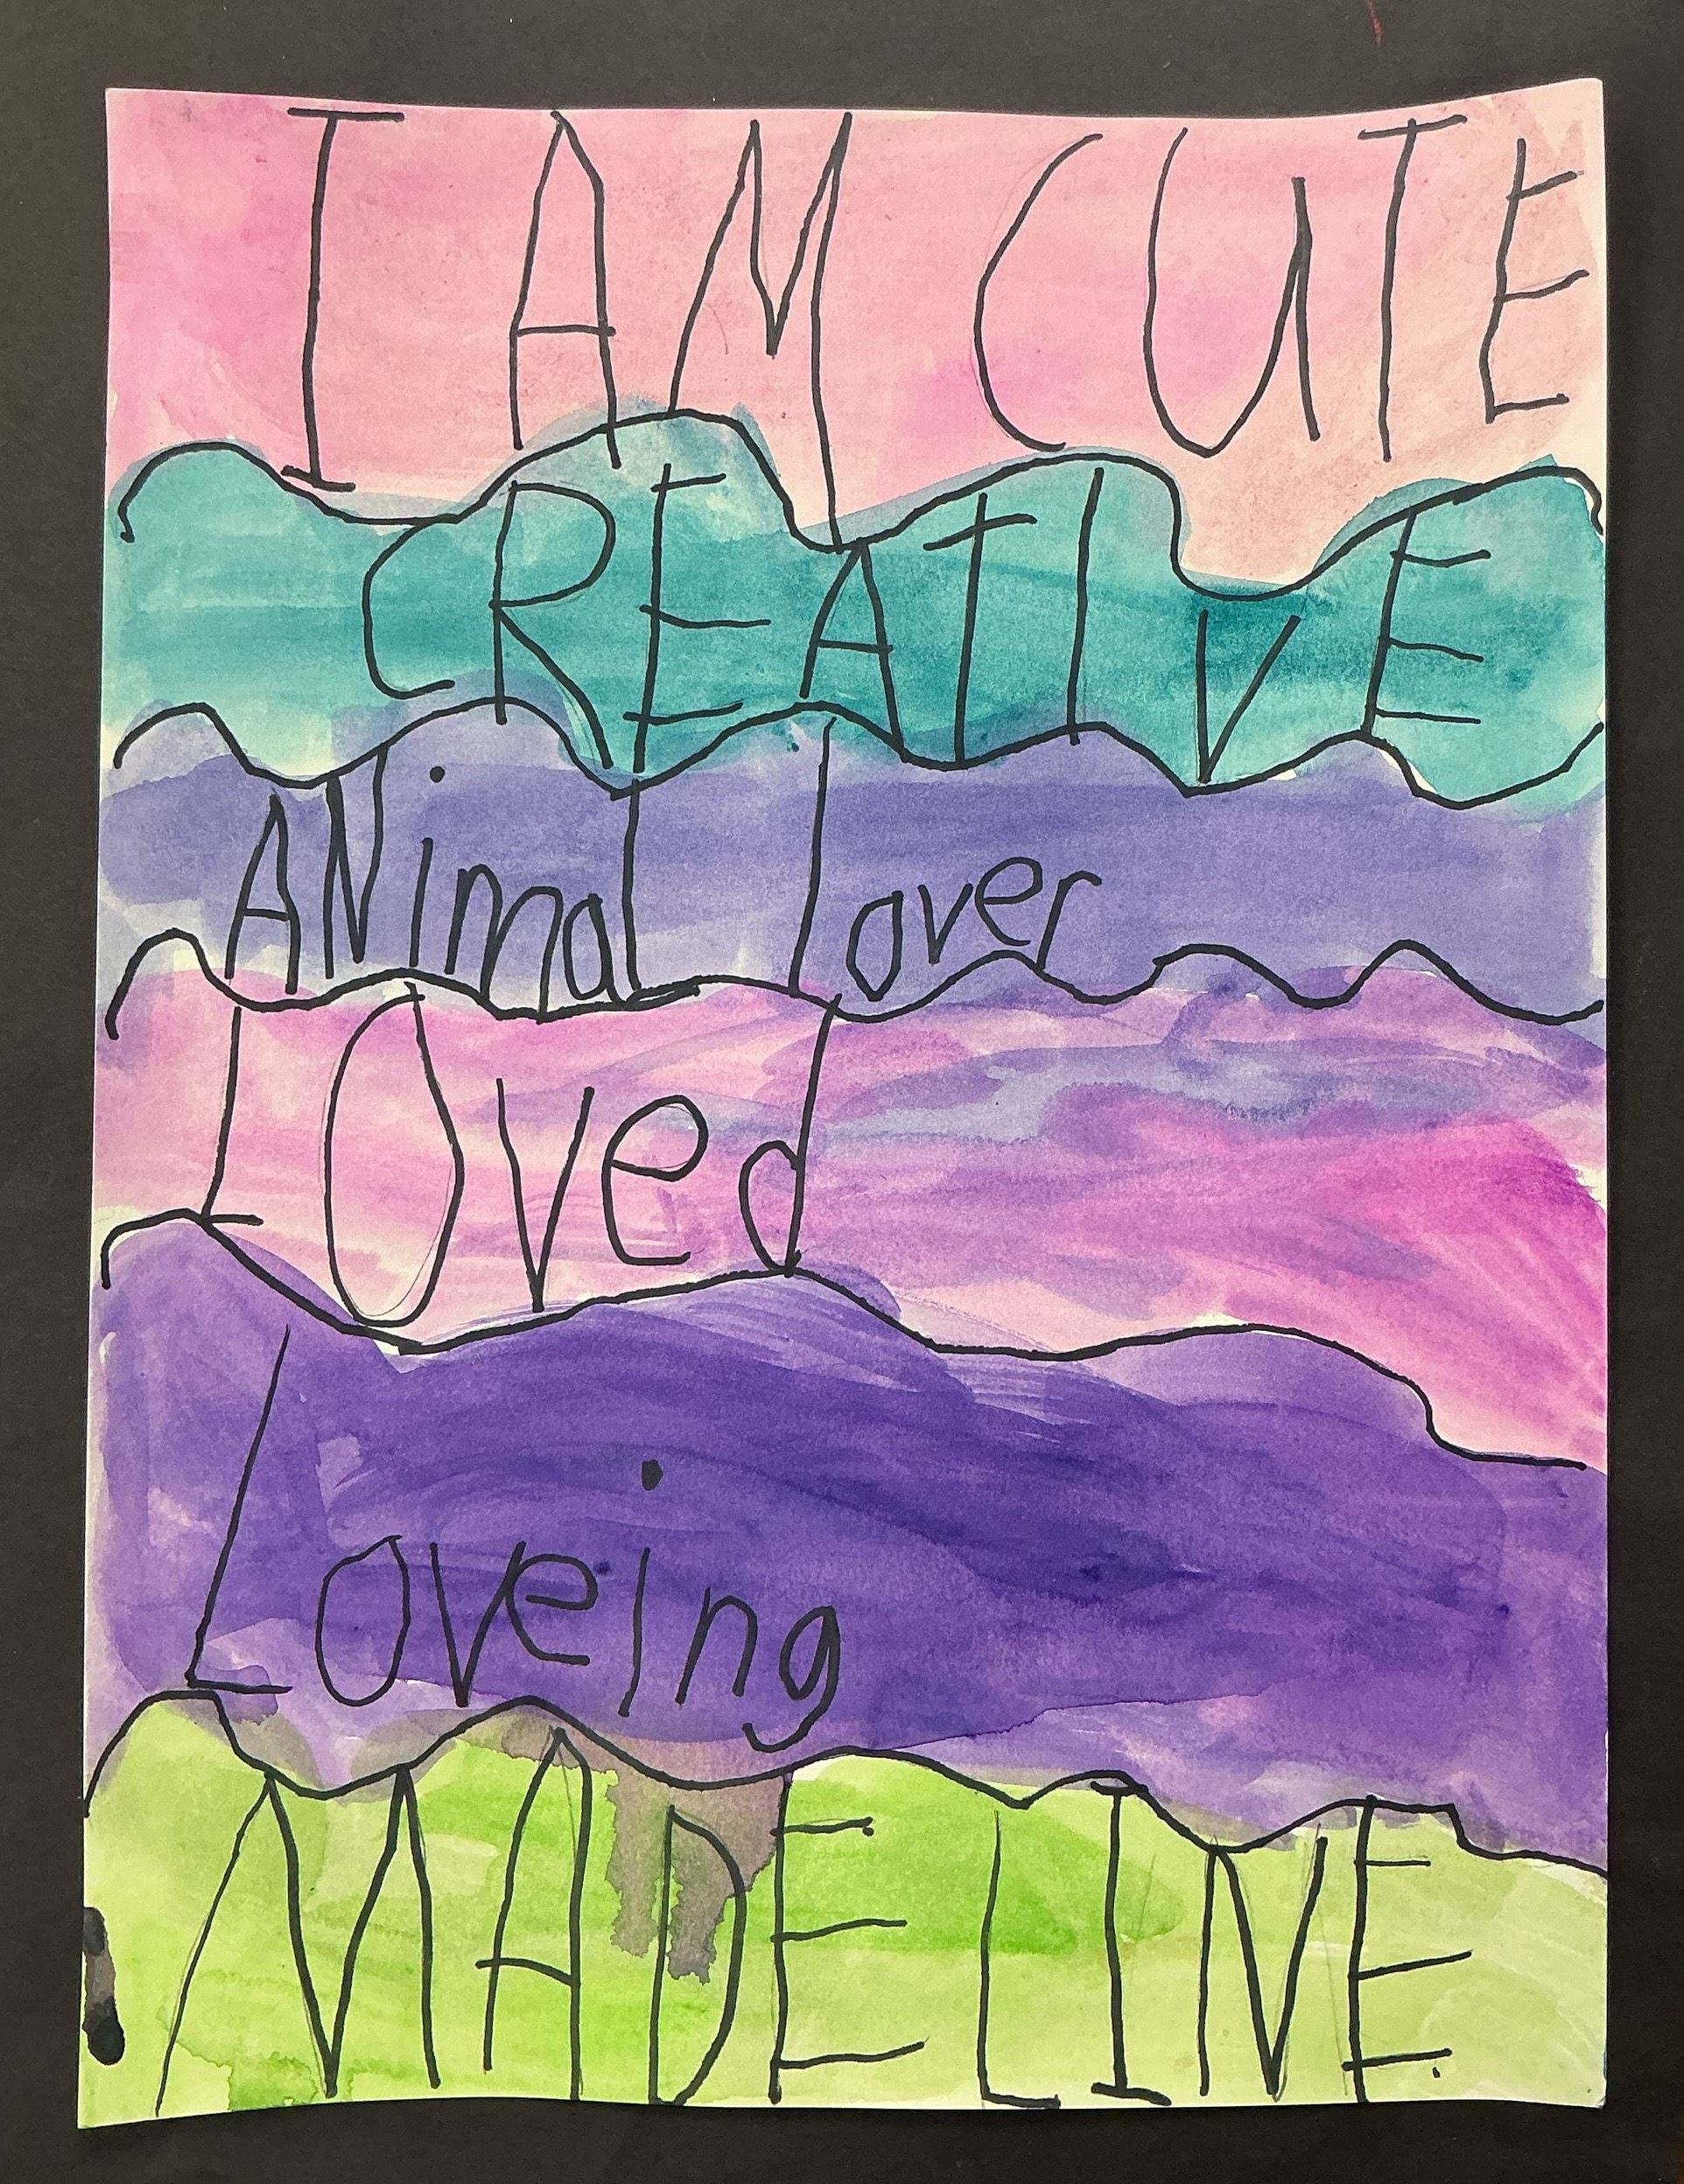 I AM CUTE
CREATIVE
ANimal lover
LOved
Loveing
MADELINE.